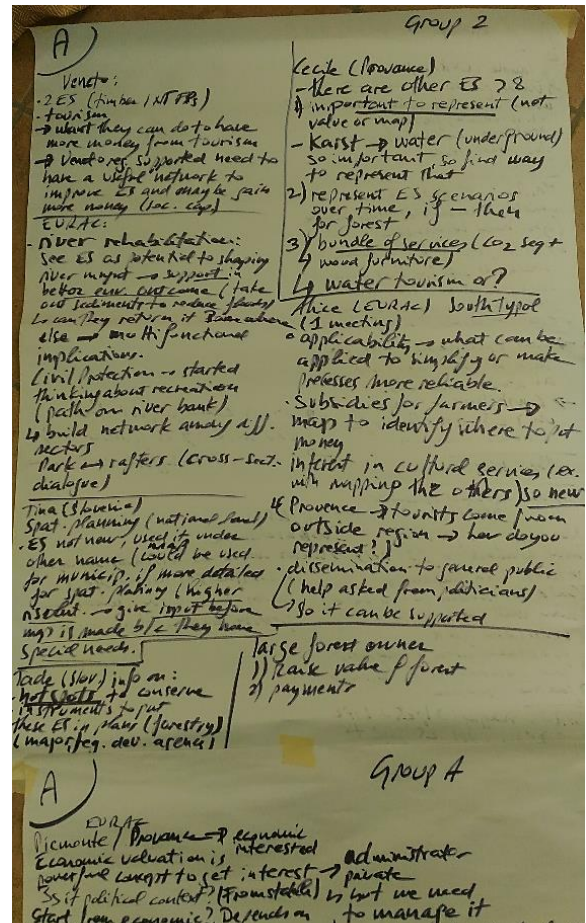 A)
Group 2
Veneto:
- 2 ES (timber / NTFPs)
- tourism
→ what they can do to have
more money from tourism
→ Veneto reg. supported need to
have a useful network to
improve ES and maybe gain
more money (loc.
EURAC:
- river rehabilitation:
see ES as potential to shaping
river → support in
better env. outcome (take
out sediments to reduce floods)
↳ can they return it somewhere
else → multifunctional
implications.
Civil Protection → started
thinking about recreation
(path on river bank)
↳ build network among diff.
sectors
Park → rafters (cross-sect.
dialogue)
Tina (Slovenia)
Spat. planning (national level)
- ES not new, used it under
other name (could be used
maps
for municip. if more detailed
for spat. planing (higher
→ give input before
map is made b/c they have
special needs.
(Slov) info on:
- hot spots to conserve
- instruments to put
these ES in plans (forestry)
(major/reg. dev. agency)
Cecile (Provance)
- there are other ES > 8
1) important to represent (not
value or map)
- Karst → water (underground)
so important, so find way
to represent that
2) represent ES scenarios
over time, if - then
for forest
3) bundle of services (CO2 seq +
wood furniture)
↳ water tourism or?
Alice (EURAC) South Tyrol
(1 meeting)
applicability → what can be
applied to simplify or make
processes more reliable.
- Subsidies for farmers →
map to identify where to put
money
interest in cultural services (ex.
with mapping the others) so new
Provence → tourists come from
outside region → how do you
represent?
- dissemination to general public
(help asked from politicians)
↳ so it can be supported
large forest owner
1) Raise value of forest
2) payments
A)
Group A
EURAC
Piemonte / Provance → economic
interested
Economic valuation is
powerful concept to get interest → administrator
private
Is it political context? ↳ but we need
Start from economic? Depends on to manage it